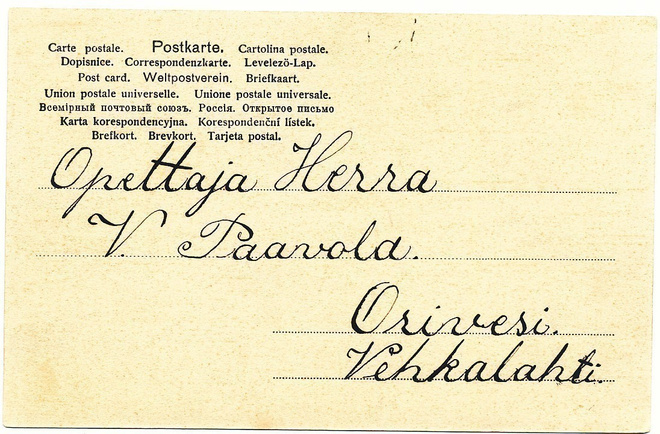 Carte postale. Postkarte. Cartolina postale.
Dopisnice. Correspondenzkarte. Levelező-Lap.
Post card. Weltpostverein. Briefkaart.
Union postale universelle. Unione postale universale.
Всемірный почтовый союзъ. Россія. Открытое письмо
Karta korespondencyjna. Korespondenční lístek.
Brefkort. Brevkort. Tarjeta postal.
Opettaja Herra
V. Paavola.
Orivesi.
Vehkalahti.